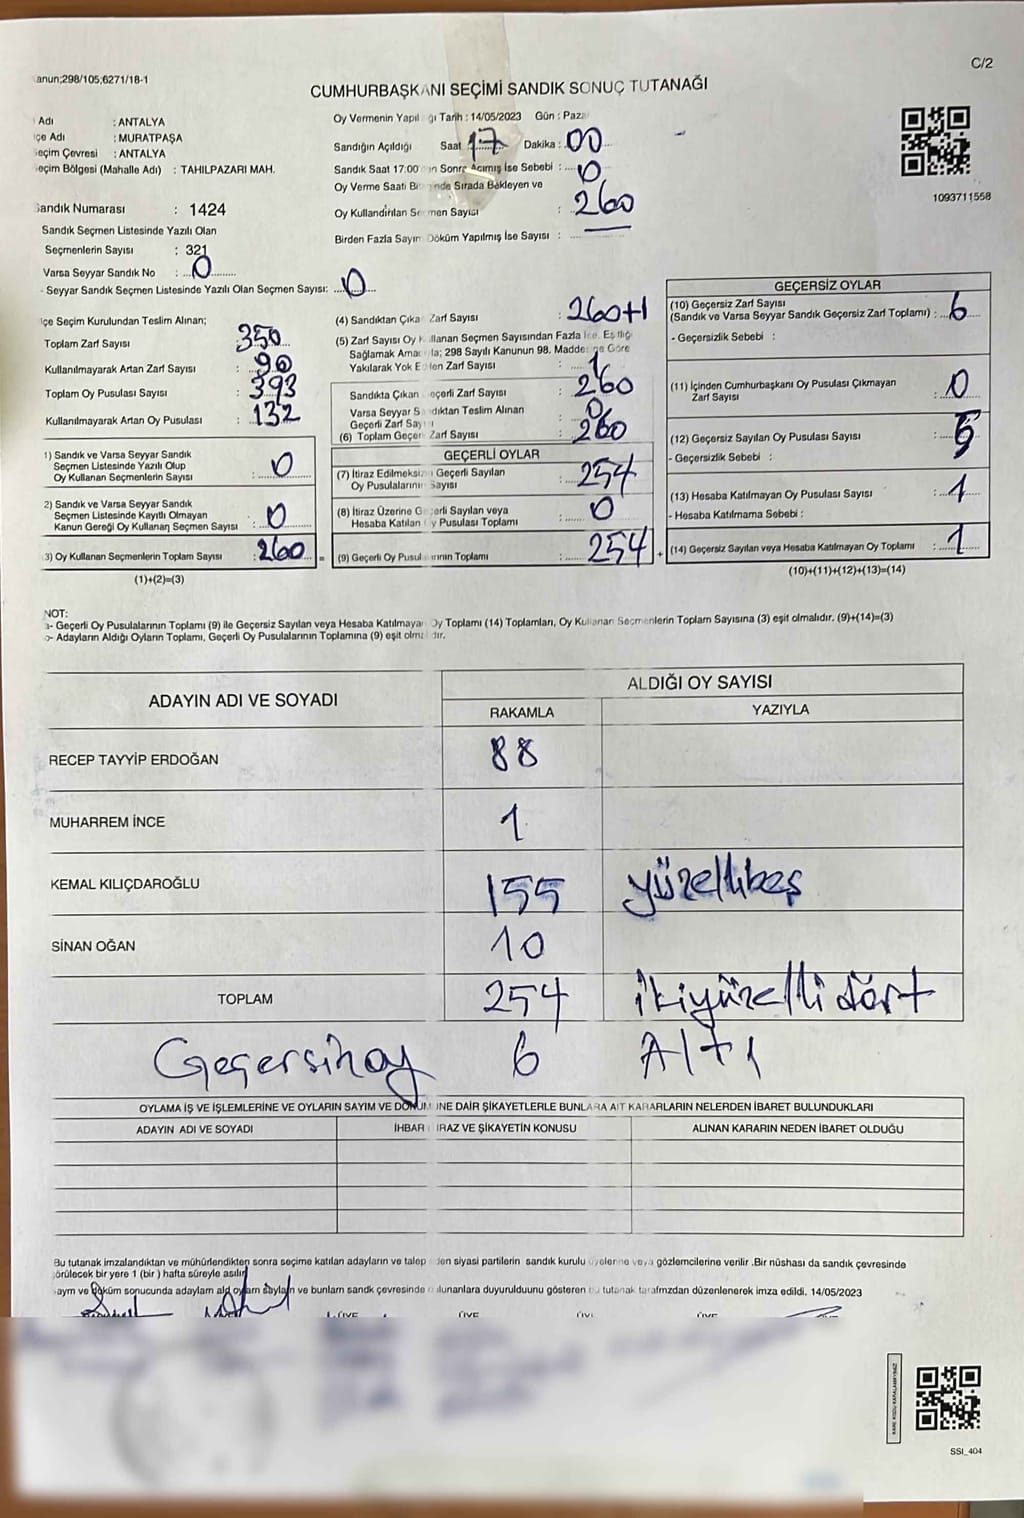 anun;298/105;6271/18-1
C/2
CUMHURBAŞKANI SEÇİMİ SANDIK SONUÇ TUTANAĞI
Adı : ANTALYA
çe Adı : MURATPAŞA
eçim Çevresi : ANTALYA
eçim Bölgesi (Mahalle Adı) : TAHILPAZARI MAH.
Sandık Numarası : 1424
Sandık Seçmen Listesinde Yazılı Olan
Seçmenlerin Sayısı : 321
Varsa Seyyar Sandık No : 0
- Seyyar Sandık Seçmen Listesinde Yazılı Olan Seçmen Sayısı: 0
Oy Vermenin Yapıl ğı Tarih : 14/05/2023 Gün : Paza
Sandığın Açıldığı Saat : 17 Dakika : 00
Sandık Saat 17:00 n Sonra Açımış İse Sebebi : 0
Oy Verme Saati Bi inde Sırada Bekleyen ve
Oy Kullandırılan Seçmen Sayısı : 260
Birden Fazla Sayım Döküm Yapılmış İse Sayısı :
1093711558
çe Seçim Kurulundan Teslim Alınan;
Toplam Zarf Sayısı : 350
Kullanılmayarak Artan Zarf Sayısı : 90
Toplam Oy Pusulası Sayısı : 393
Kullanılmayarak Artan Oy Pusulası : 132
1) Sandık ve Varsa Seyyar Sandık
Seçmen Listesinde Yazılı Olup
Oy Kullanan Seçmenlerin Sayısı : 0
2) Sandık ve Varsa Seyyar Sandık
Seçmen Listesinde Kayıtlı Olmayan
Kanun Gereği Oy Kullanan Seçmen Sayısı : 0
3) Oy Kullanan Seçmenlerin Toplam Sayısı : 260 =
(1)+(2)=(3)
(4) Sandıktan Çıkan Zarf Sayısı : 260+1
(5) Zarf Sayısı Oy Kullanan Seçmen Sayısından Fazla ise, Eşitliği
Sağlamak Ama la; 298 Sayılı Kanunun 98. Madde ne Göre
Yakılarak Yok Edilen Zarf Sayısı : 1
Sandıkta Çıkan Geçerli Zarf Sayısı : 260
Varsa Seyyar Sandıktan Teslim Alınan
Geçerli Zarf Sayısı : 0
(6) Toplam Geçerli Zarf Sayısı : 260
GEÇERLİ OYLAR
(7) İtiraz Edilmeksizin Geçerli Sayılan
Oy Pusulalarının Sayısı : 254
(8) İtiraz Üzerine Geçerli Sayılan veya
Hesaba Katılan Oy Pusulası Toplamı : 0
(9) Geçerli Oy Pusulalarının Toplamı : 254 +
GEÇERSİZ OYLAR
(10) Geçersiz Zarf Sayısı
(Sandık ve Varsa Seyyar Sandık Geçersiz Zarf Toplamı) : 6
- Geçersizlik Sebebi :
(11) İçinden Cumhurbaşkanı Oy Pusulası Çıkmayan
Zarf Sayısı : 0
(12) Geçersiz Sayılan Oy Pusulası Sayısı : 5
- Geçersizlik Sebebi :
(13) Hesaba Katılmayan Oy Pusulası Sayısı : 1
- Hesaba Katılmama Sebebi :
(14) Geçersiz Sayılan veya Hesaba Katılmayan Oy Toplamı : 1
(10)+(11)+(12)+(13)=(14)
NOT:
a- Geçerli Oy Pusulalarının Toplamı (9) ile Geçersiz Sayılan veya Hesaba Katılmayan Oy Toplamı (14) Toplamları, Oy Kullanan Seçmenlerin Toplam Sayısına (3) eşit olmalıdır. (9)+(14)=(3)
b- Adayların Aldığı Oyların Toplamı, Geçerli Oy Pusulalarının Toplamına (9) eşit olmalıdır.
ADAYIN ADI VE SOYADI ALDIĞI OY SAYISI
RAKAMLA YAZIYLA
RECEP TAYYİP ERDOĞAN 88
MUHARREM İNCE 1
KEMAL KILIÇDAROĞLU 155 yüzellibeş
SİNAN OĞAN 10
TOPLAM 254 ikiyüzelli dört
Geçersiz oy 6 Altı
OYLAMA İŞ VE İŞLEMLERİNE VE OYLARIN SAYIM VE DÖKÜMÜNE DAİR ŞİKAYETLERLE BUNLARA AİT KARARLARIN NELERDEN İBARET BULUNDUKLARI
ADAYIN ADI VE SOYADI İHBAR İRAZ VE ŞİKAYETİN KONUSU ALINAN KARARIN NEDEN İBARET OLDUĞU
Bu tutanak imzalandıktan ve mühürlendikten sonra seçime katılan adayların ve talep eden siyasi partilerin sandık kurulu üyelerine veya gözlemcilerine verilir .Bir nüshası da sandık çevresinde
görülecek bir yere 1 (bir ) hafta süreyle asılır.
ayım ve döküm sonucunda adayların ald oyların sayıların ve bunların sandık çevresinde bulunanlara duyurulduunu gösteren bu tutanak tarafmzdan düzenlenerek imza edildi. 14/05/2023
ÜYE ÜYE ÜYE ÜYE
KARE KODU KARALAMAYINIZ
SSI_404